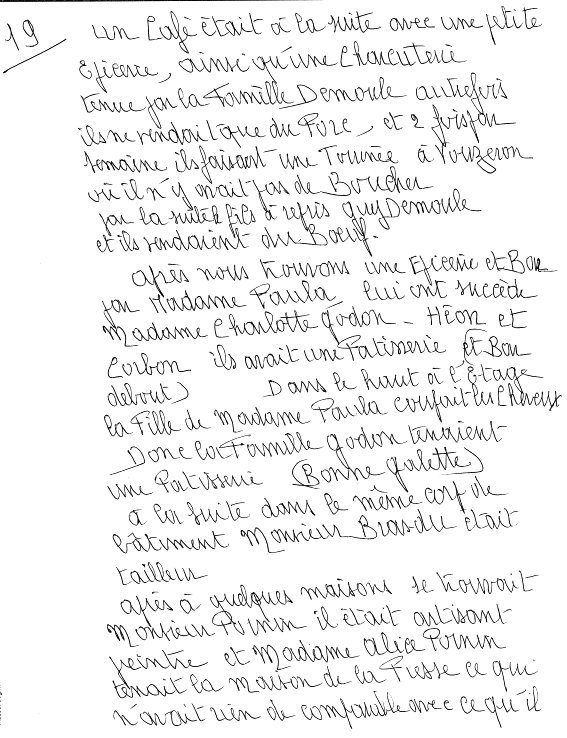 19
un Café était à la suite avec une petite
Epicerie, ainsi qu'une Charcuterie
tenue par la Famille Demoule autrefois
ils ne vendait que du Porc, et 2 fois par
semaine ils faisant une Tournée à Vouzeron
où il n'y avait pas de Boucher
par la suite le fils à repris Guy Demoule
et ils vendaient du Boeuf.
après nous trouvons une Epicerie et Bar
par Madame Paula lui ont succédé
Madame Charlotte Godon - Héon et
Corbon ils avait une Patisserie (et Bar
debout) Dans le haut à l'Etage
la Fille de Madame Paula coupait les Cheveux
Donc la Famille Godon tenaient
une Patisserie (Bonne galette)
à la suite dans le même corp de
bâtiment Monsieur était
tailleur
après à quelques maisons se trouvait
Monsieur Pornin il était artisant
peintre et Madame Alice Pornin
tenait la maison de la Presse ce qui
n'avait rien de comparable avec ce qu'il